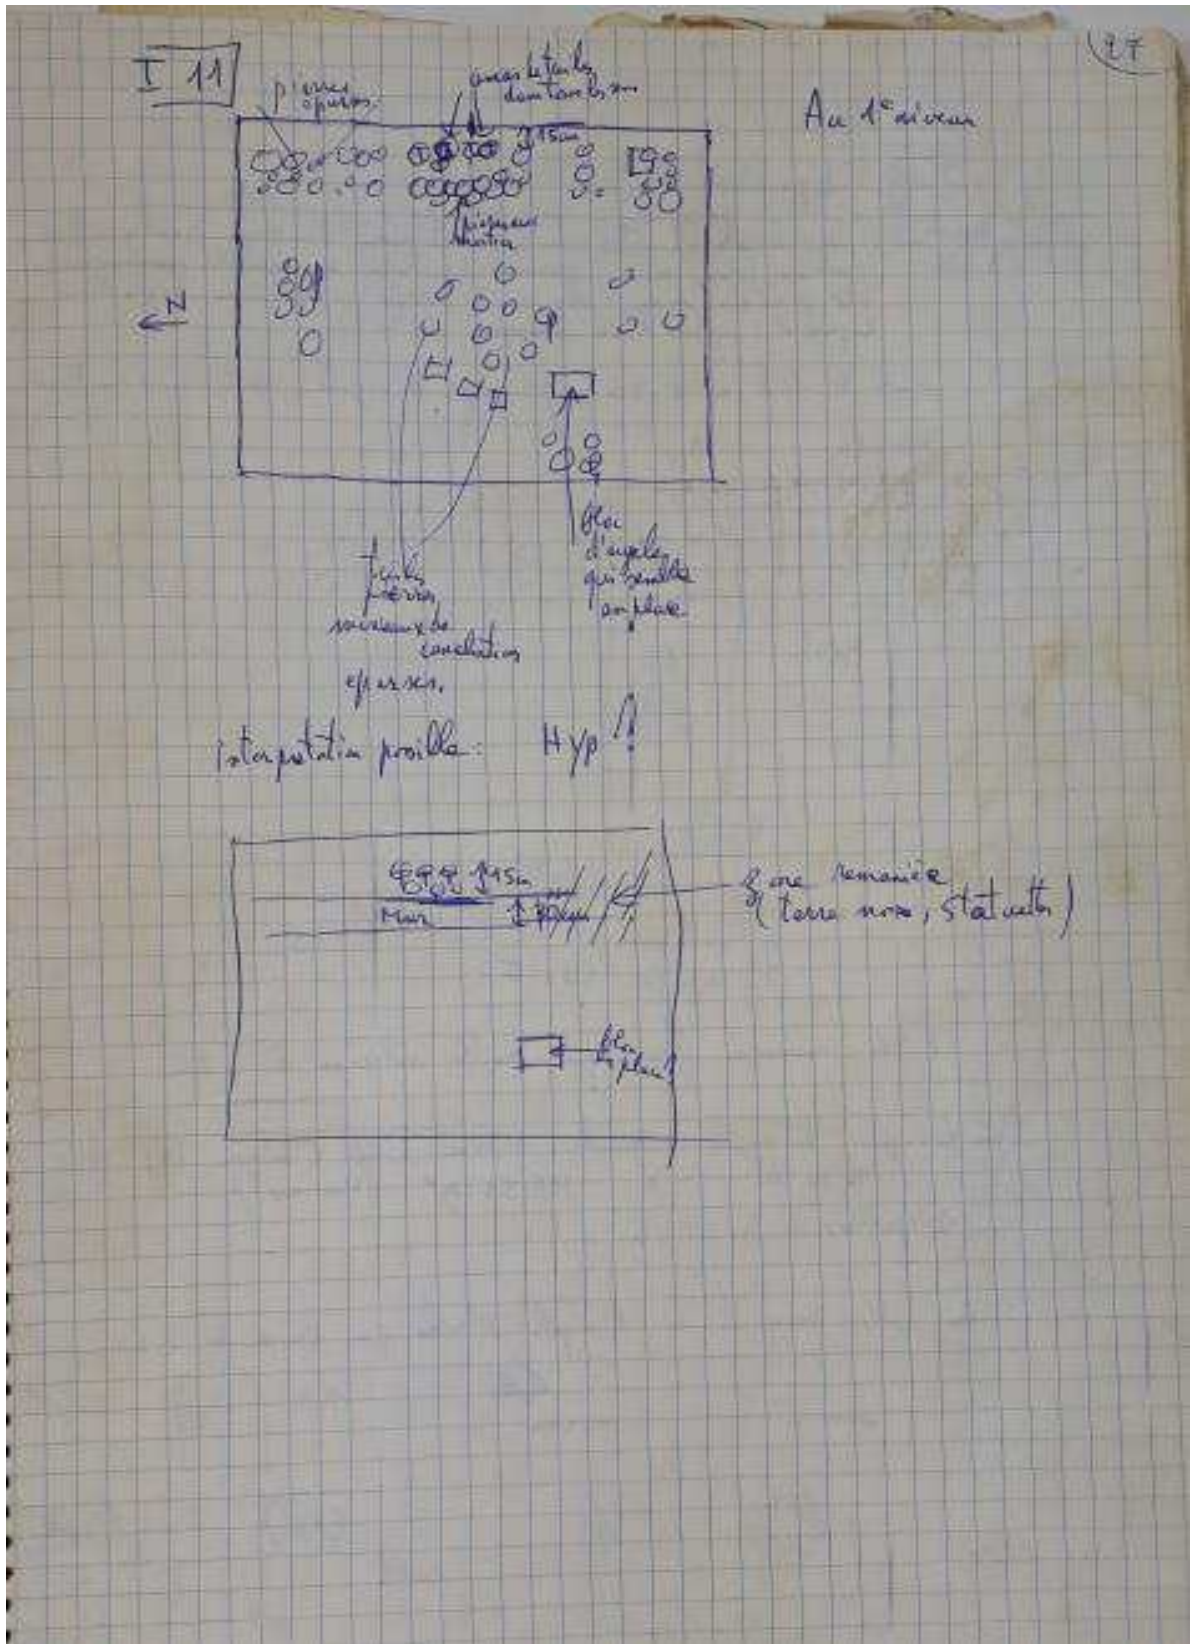 I 11
27
pierres
éparses.
amas de tuiles
dans tous les sens
Au 1° niveau
15cm
N
tuiles
pierres
morceaux de
canalisation
éparses.
bloc
d'angle
qui semble
en place.
Interprétation possible: Hyp !
15cm
Mur
Zone remaniée
(terre noire, statuettes)
bloc
en place